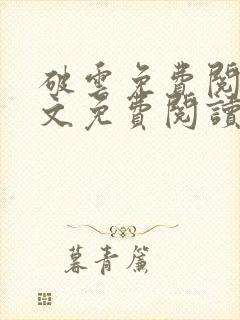 破雲免費閱
文免費閱讀
暮青簾